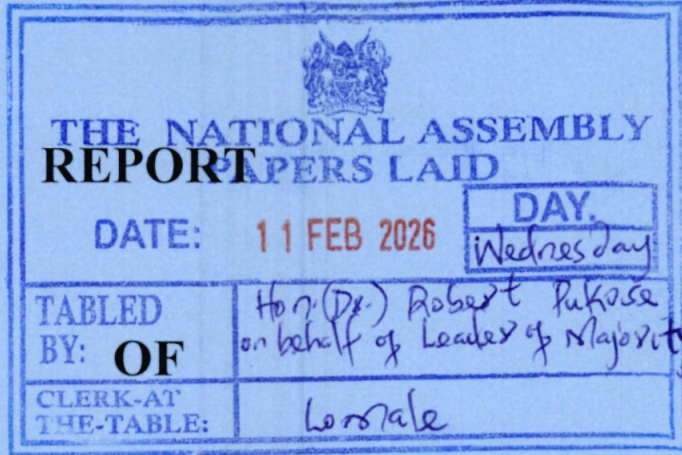 THE NATIONAL ASSEMBLY
REPORT
PAPERS LAID
DATE: 11 FEB 2026
DAY.
Wednesday
TABLED BY:
Hon. (Dr.) Robert Pukose
on behalf of Leader of Majority
OF
CLERK-AT THE-TABLE: